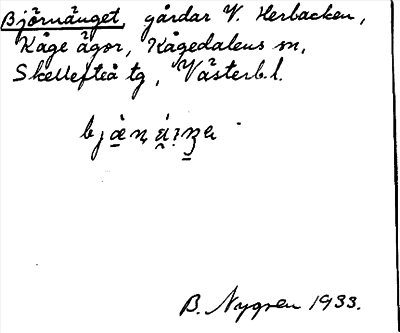 Björnänget, gårdar V. Herbacken,
Kåge ägor, Kågedalens sn,
Skellefteå tg, Västerb. l.
B. Nygren 1933.